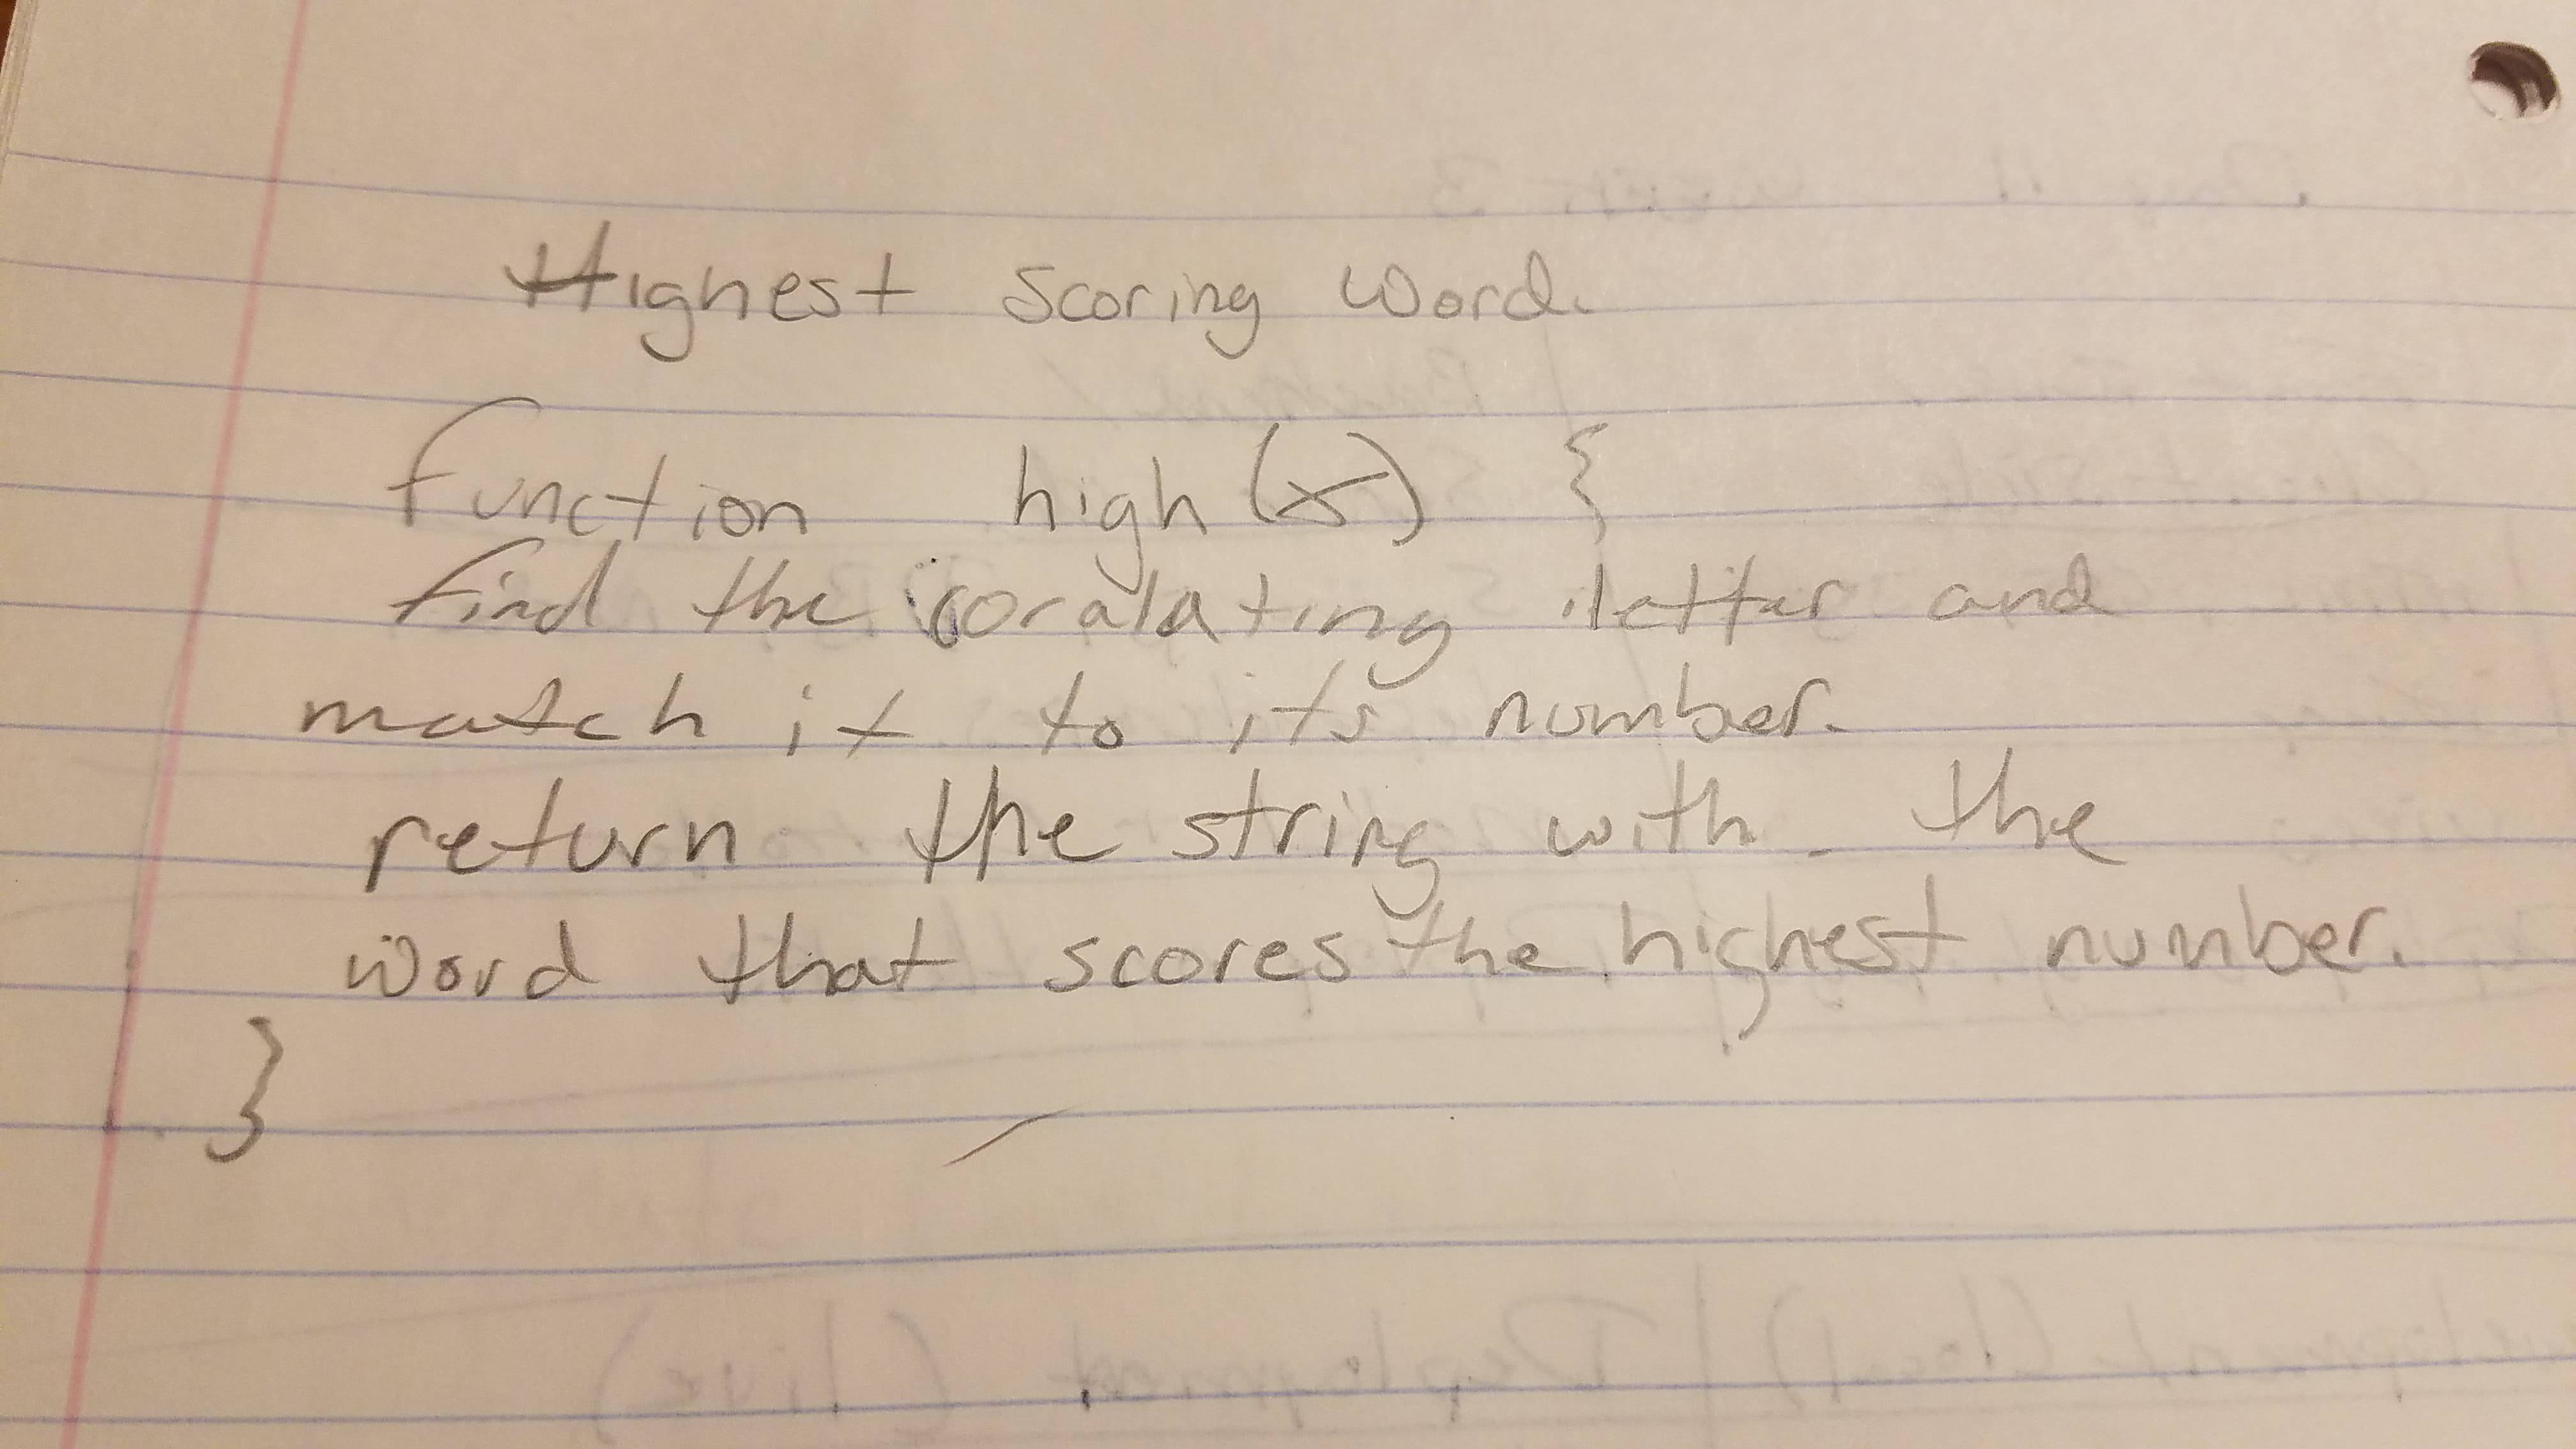 Highest Scoring Word.
function high(x) {
find the coralating letter and
match it to its number.
return the string with the
word that scores the highest number.
}